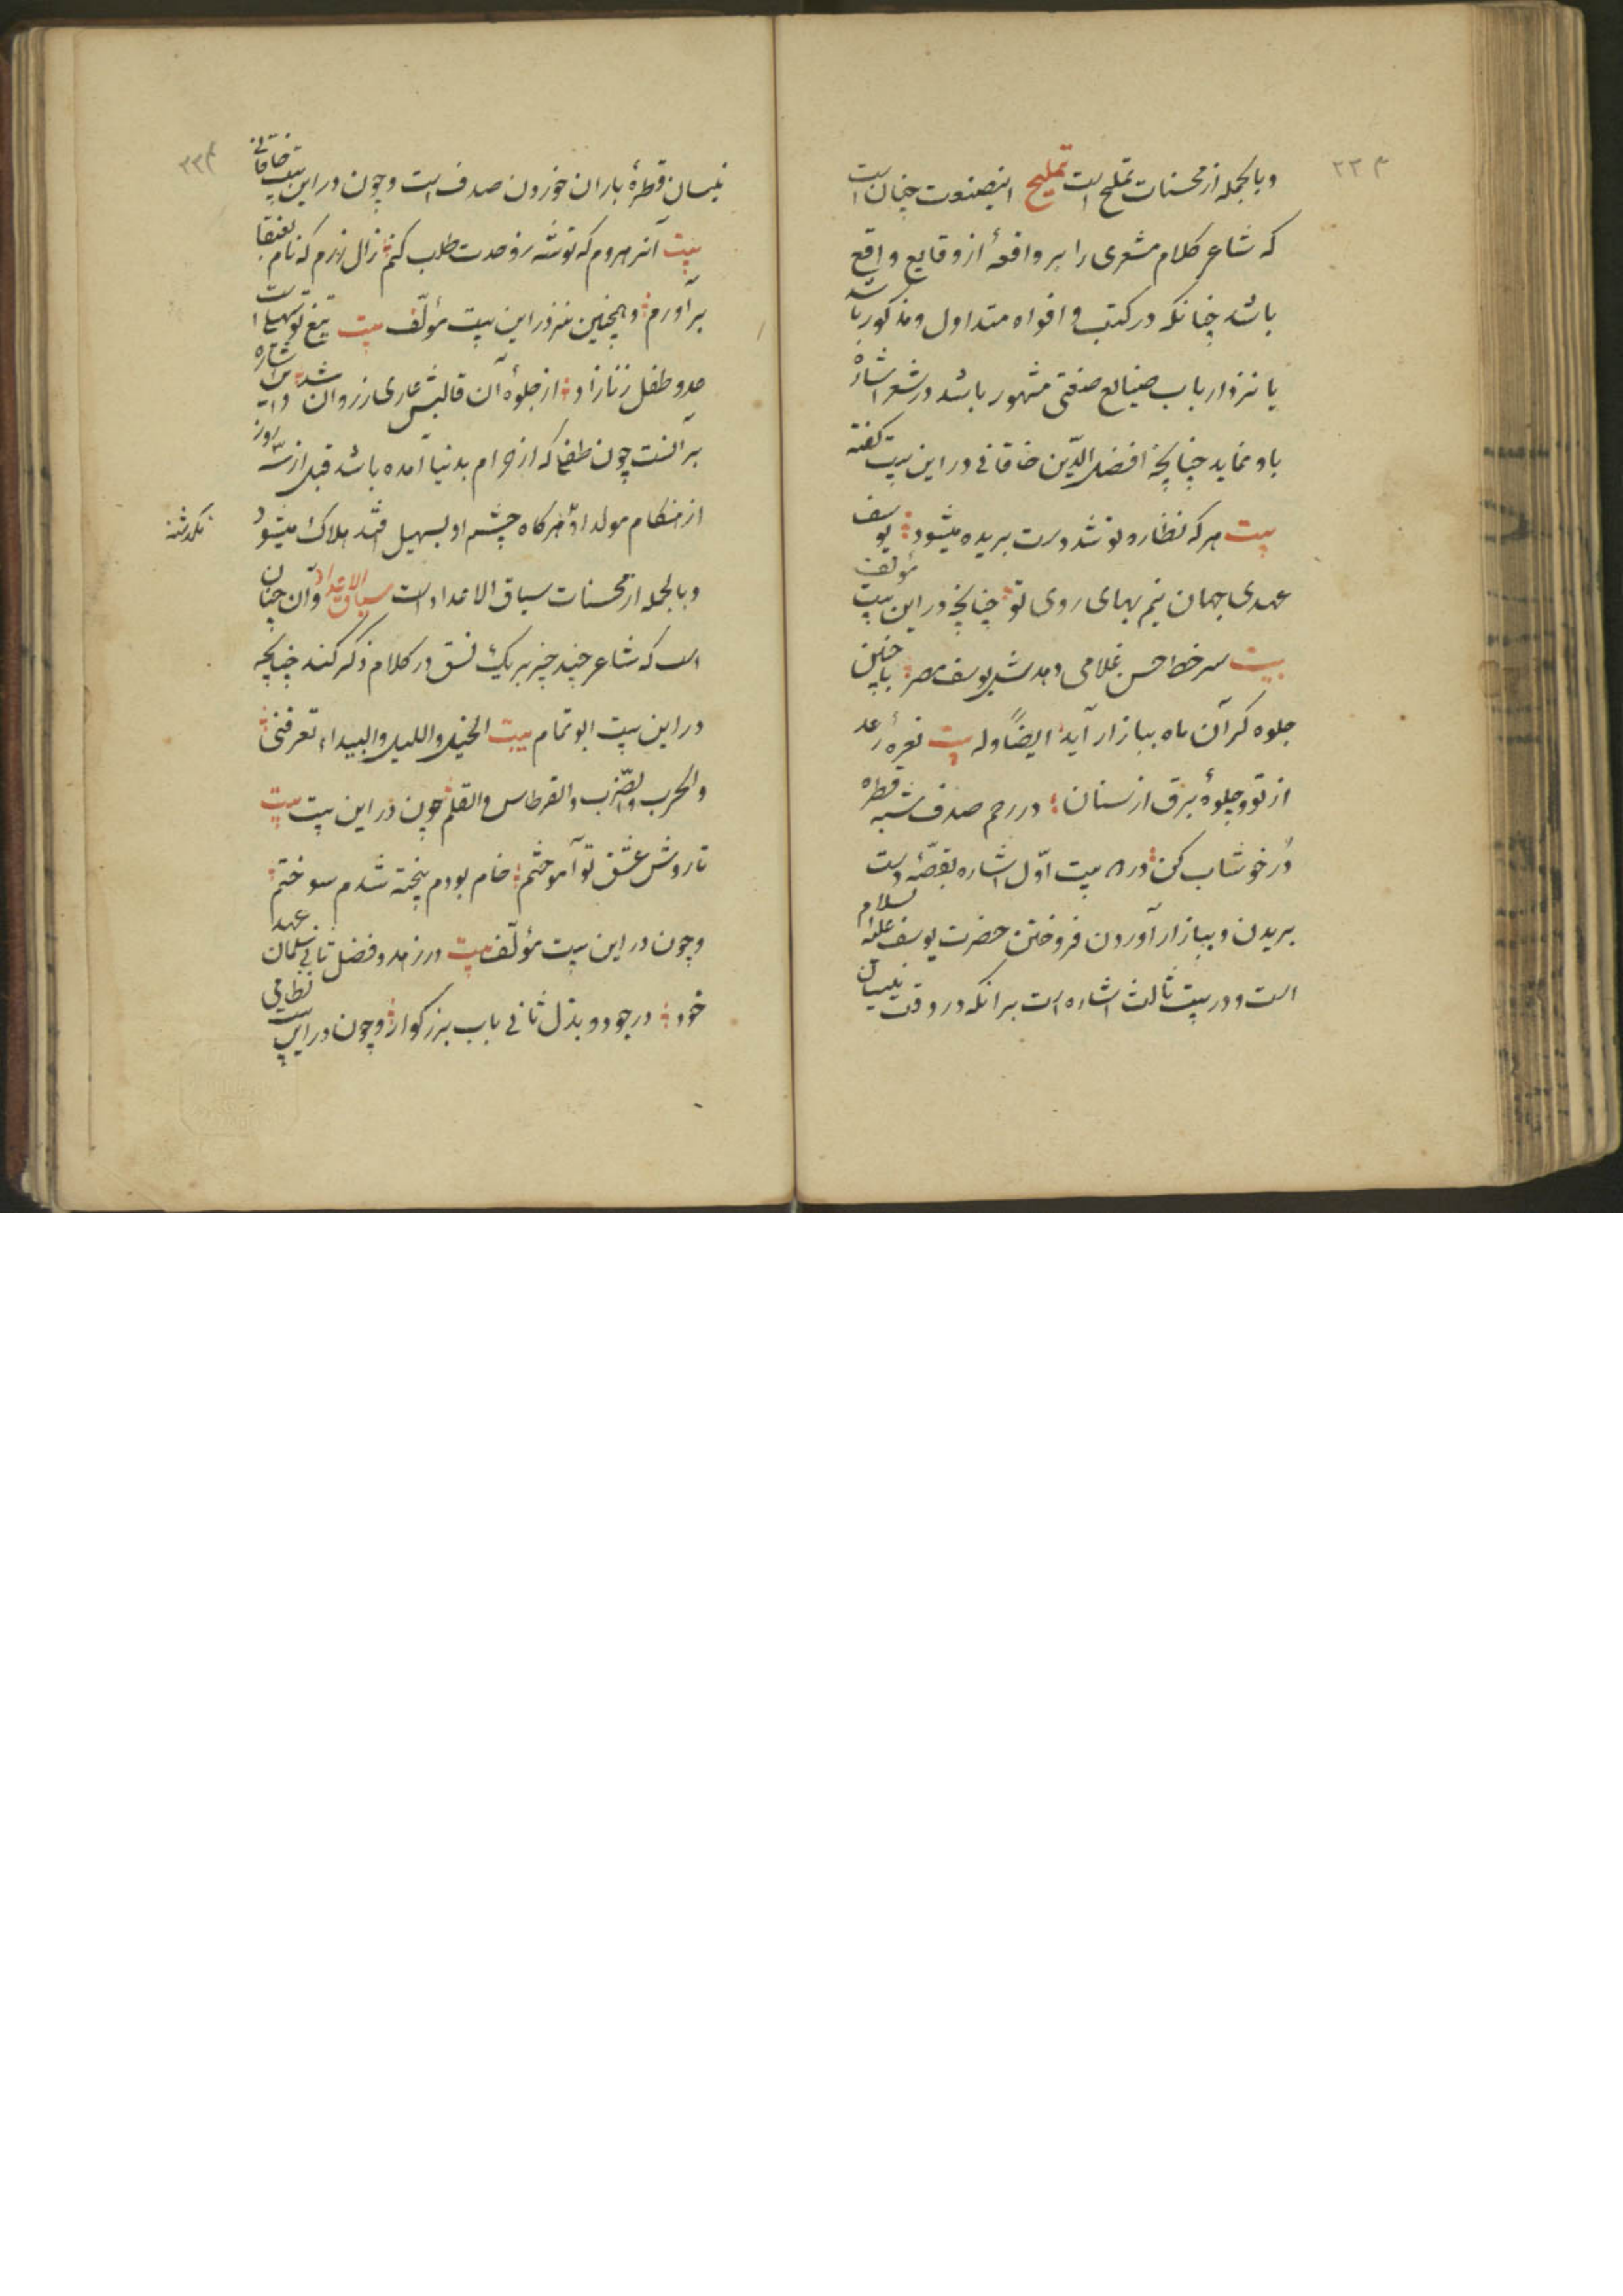 ۲۲۳
وبالجمله از محسنات تملیح است تملیح اینصنعت چنان است
که شاعر کلام مشعری را بر واقعهٔ از وقایع واقع
باشد چنانکه در کتب و افواه متداول و مذکور باشد
یا نزد ارباب صنایع صنعتی مشهور باشد در شعر اشارهٔ
باو نماید چنانچه افضل الدّین خاقانی در این بیت گفته
بیت هر که نظاره تو شد دست بریده میشود یوسف
عهدی جهان نیم بهای روی تو چنانچه در این بیت مؤلف
بیت سر خط حسن غلامی دهدش یوسف مصر با چنین
جلوه گر آن ماه ببازار آید ایضاً وله بیت نعرهٔ رعد
از تو و جلوهٔ برق از سنان در رحم صدف شبه قطره
دُر خوشاب کن در بیت اوّل اشاره بقصّهٔ دست
بریدن و ببازار آوردن فروختن حضرت یوسف علیه السلام
است و در بیت ثالث اشاره است برانکه در وقت نیسان
۲۲۴
نیسان قطرهٔ باران خوردن صدف است و چون در این بیت خاقانی
بیت آنر مروم که توشه ز وحدت طلب کنم زال زرم که نام بعنقا
برآورم و همچنین نیز در این بیت مؤلّف بیت تیغ تو سهیل است
عدو طفل زنازاد از جلوهٔ آن قالبش عاری ز روان شد این اشاره
بر آنست چون طفلی که از حرام بدنیا آمده باشد قبل از سه روز
از هنکام مولد او هرکاه چشم او بسهیل فتد هلاک میشود
نکذشته
وبالجمله از محسنات سیاق الاعداد است سیاق الاعداد و آن چنان
است که شاعر چند چیز بر یک نسق در کلام ذکر کند چنانچه
در این بیت ابو تمام بیت الخیل واللیل والبیداء تعرفنی
والحرب والضّرب والقرطاس والقلم چون در این بیت بیت
تا روش عشق تو آموختم خام بودم پخته شدم سوختم
و چون در این بیت مؤلّف بیت در زهد و فضل ثانی سلمان عهد
خود در جود و بذل ثانی باب بزرکوار و چون در این بیت نظامی